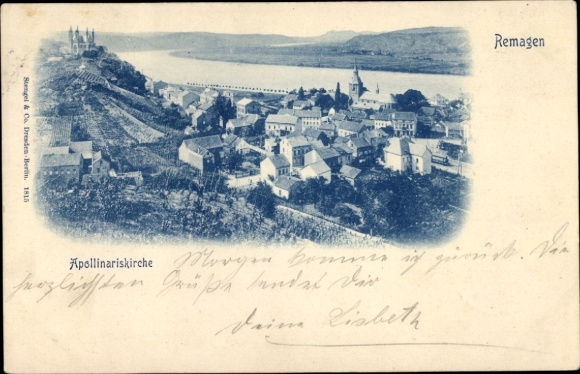 Remagen
Stengel & Co. Dresden-Berlin. 1815
Apollinariskirche
Morgen komme ich zurück. Die
herzlichsten Grüße sendet Dir
Deine Lisbeth